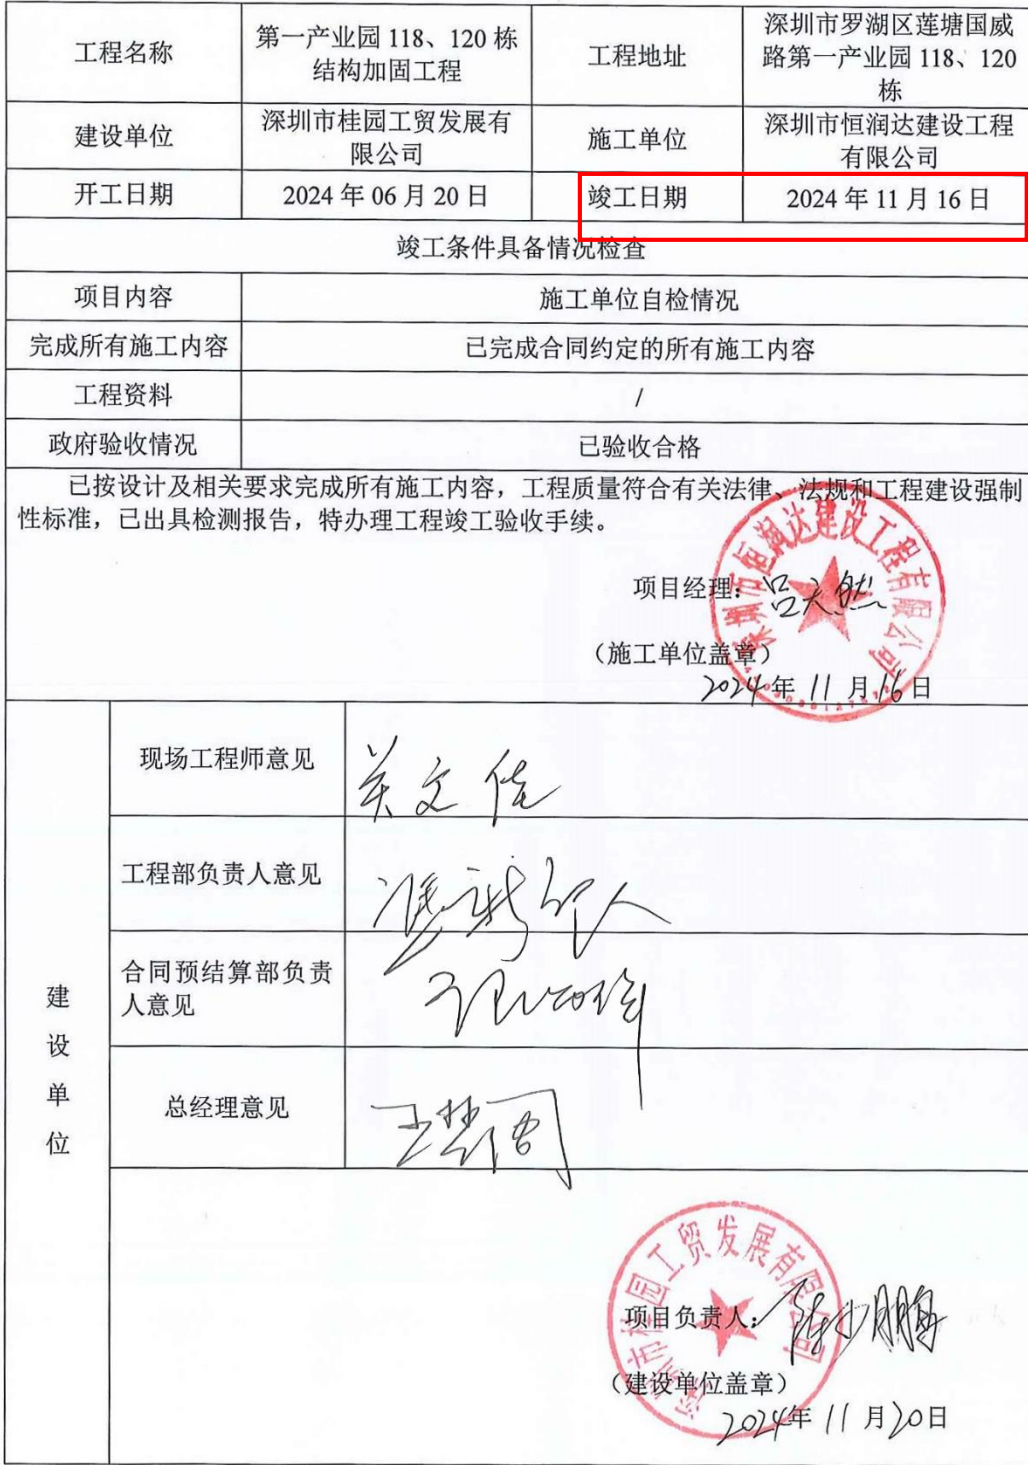 工程名称
第一产业园 118、120 栋
结构加固工程
工程地址
深圳市罗湖区莲塘国威
路第一产业园 118、120
栋
建设单位
深圳市桂园工贸发展有
限公司
施工单位
深圳市恒润达建设工程
有限公司
开工日期
2024 年 06 月 20 日
竣工日期
2024 年 11 月 16 日
竣工条件具备情况检查
项目内容
施工单位自检情况
完成所有施工内容
已完成合同约定的所有施工内容
工程资料
/
政府验收情况
已验收合格
已按设计及相关要求完成所有施工内容，工程质量符合有关法律、法规和工程建设强制
性标准，已出具检测报告，特办理工程竣工验收手续。
深圳市恒润达建设工程有限公司
项目经理：吕天然
（施工单位盖章）
2024年 11 月 16 日
建设单位
现场工程师意见
关文佳
工程部负责人意见
合同预结算部负责
人意见
总经理意见
深圳市桂园工贸发展有限公司
项目负责人：
（建设单位盖章）
2024年 11 月 20 日